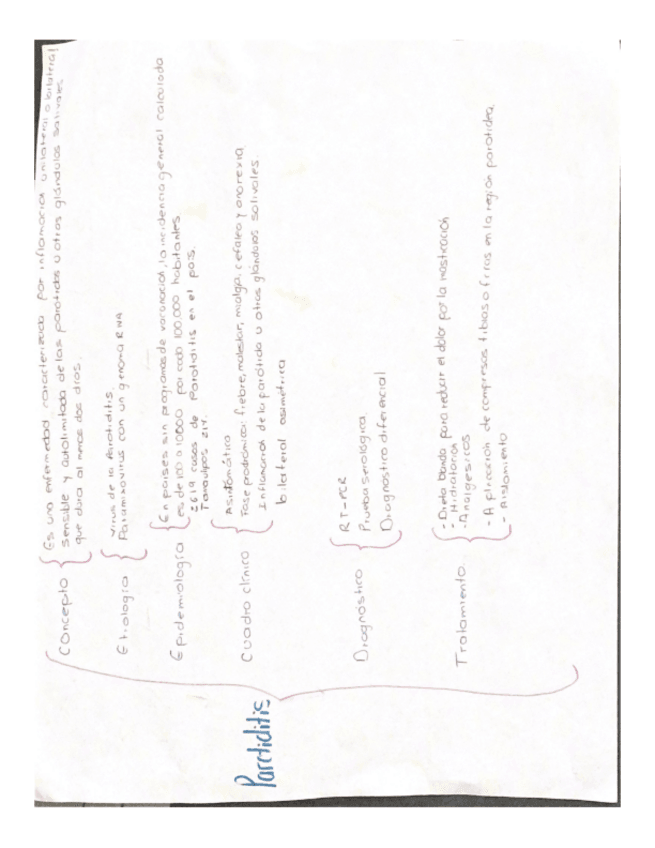 Parotiditis
Concepto
Es una enfermedad caracterizada por inflamación unilateral o bilateral
sensible y autolimitada de las parótidas u otras glándulas salivales
que dura al menos dos días.
Etiología
Virus de la Parotiditis.
Paramixovirus con un genoma RNA
Epidemiología
En países sin programas de vacunación, la incidencia general calculada
es de 100 a 1000 por cada 100.000 habitantes
2619 casos de Parotiditis en el país.
Tamaulipas 214.
Cuadro clínico
Asintomático
Fase prodrómica: fiebre, malestar, mialgia, cefalea y anorexia
Inflamación de la parótida u otras glándulas salivales.
bilateral asimétrica
Diagnóstico
RT-PCR
Prueba serológica
Diagnostico diferencial
Tratamiento
- Dieta blanda para reducir el dolor por la masticación
- Hidratación
- Analgesicos
- Aplicación de compresas tibias o frías en la región parotidea.
- Aislamiento